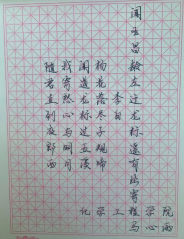 闻王昌龄左迁龙标遥有此寄
李白
杨花落尽子规啼
闻道龙标过五溪
我寄愁心与明月
随君直到夜郎西